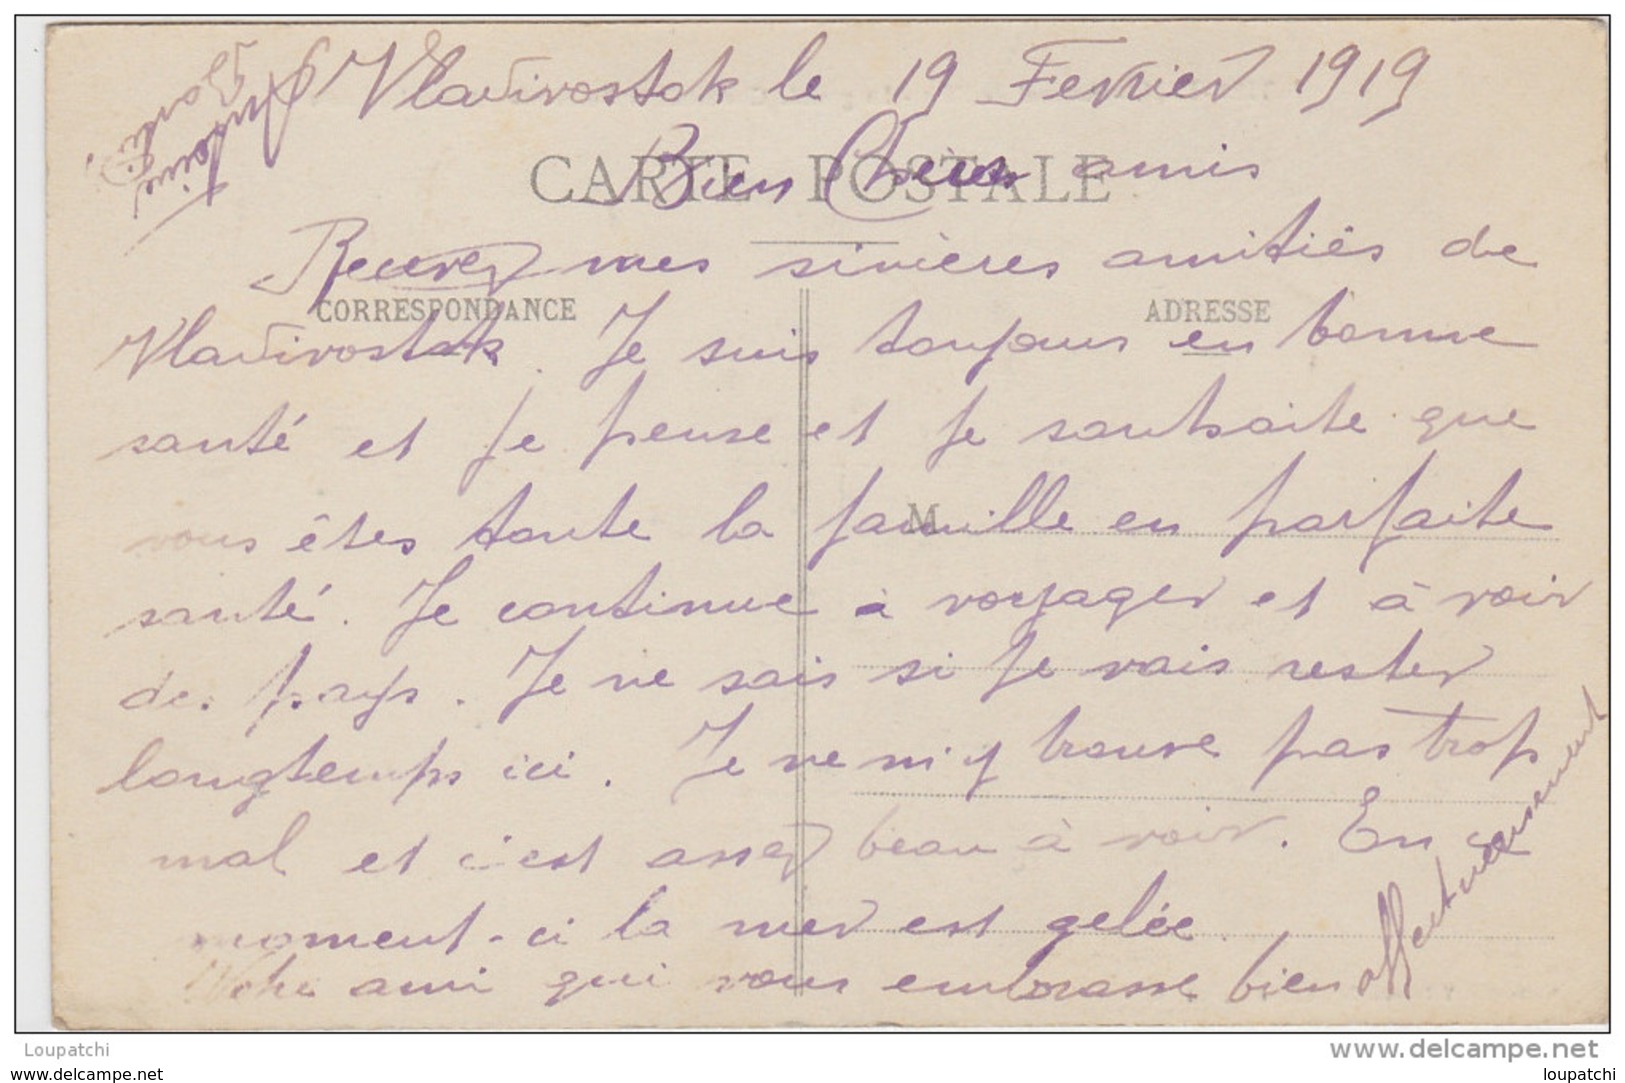 Vladivostok le 19 Fevrier 1919
Bien Chers amis
CARTE POSTALE
Recevez mes sincères amitiés de
CORRESPONDANCE
ADRESSE
Vladivostok. Je suis toujours en bonne
santé et je pense et je souhaite que
M
vous êtes toute la famille en parfaite
santé. Je continue à voyager et à voir
des pays. Je ne sais si je vais rester
longtemps ici. Je ne m'y trouve pas trop
mal et c'est assez beau à voir. En ce
moment-ci la mer est gelée.
Votre ami qui vous embrasse bien affectueusement
Antoine
Loupatchi
www.delcampe.net
loupatchi www.delcampe.net
loupatchi